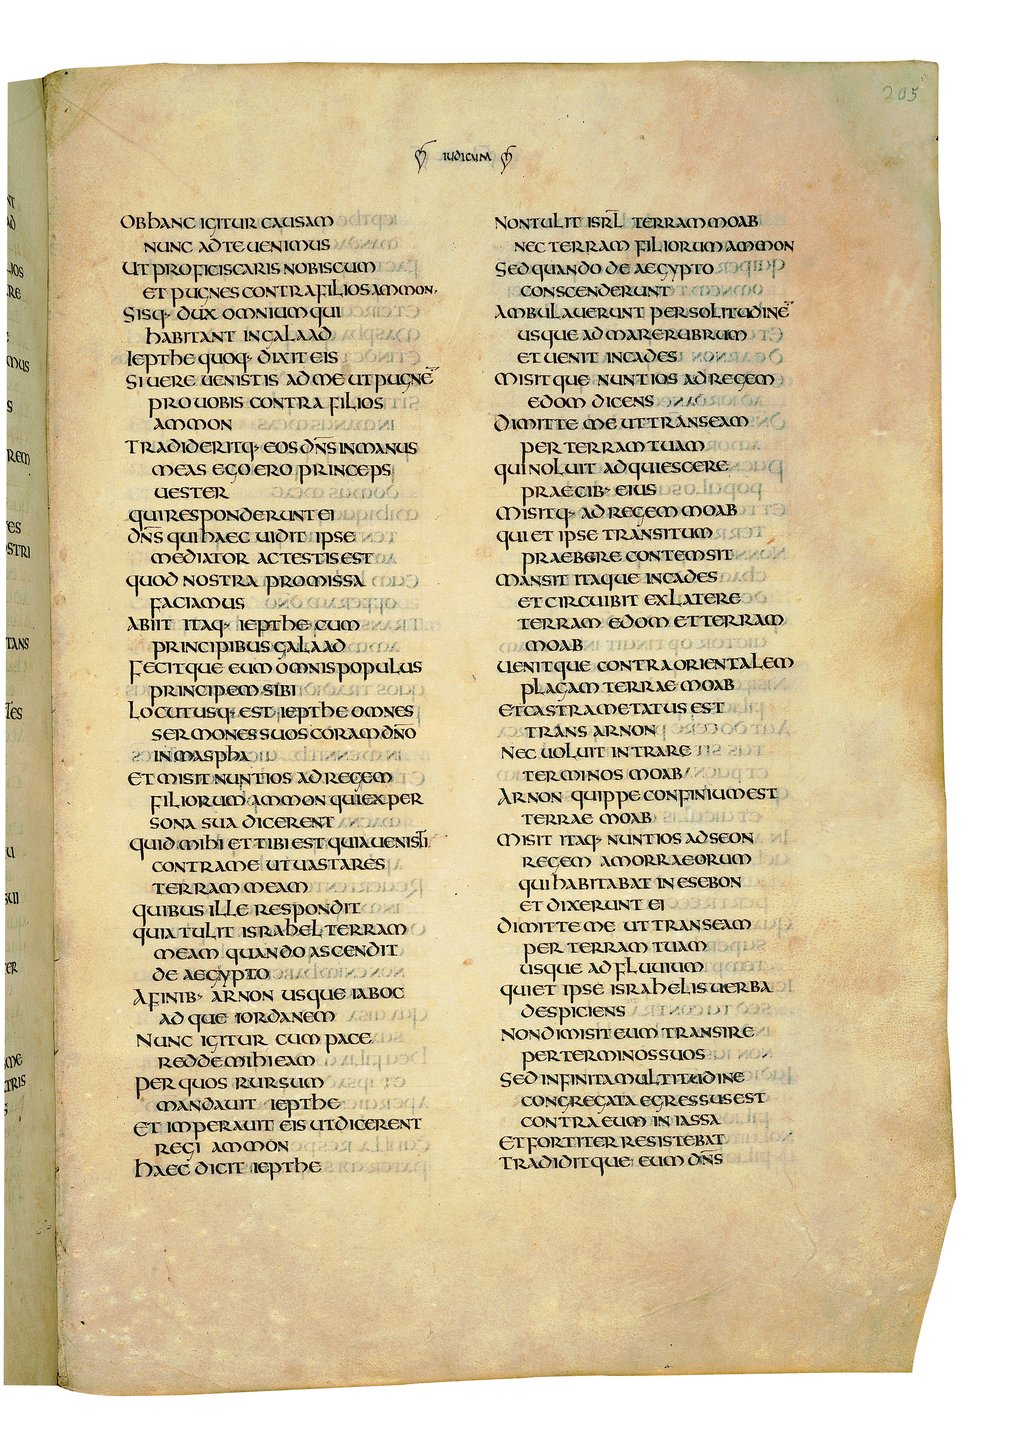 205
IUDICUM
OBHANC IGITUR CAUSAM
NUNC AD TE UENIMUS
UT PROFICISCARIS NOBISCUM
ET PUGNES CONTRA FILIOS AMMON,
SISQ· DUX OMNIUM QUI
HABITANT IN GALAAD
IEPTHE QUOQ· DIXIT EIS
SI UERE UENISTIS AD ME UT PUGNĒ
PRO UOBIS CONTRA FILIOS
AMMON
TRADIDERITQ· EOS DN̄S IN MANUS
MEAS EGO ERO PRINCEPS
UESTER
QUI RESPONDERUNT EI
DN̄S QUI HAEC UIDIT IPSE
MEDIATOR AC TESTIS EST
QUOD NOSTRA PROMISSA
FACIAMUS
ABIIT ITAQ· IEPTHE CUM
PRINCIPIBUS GALAAD
FECITQUE EUM OMNIS POPULUS
PRINCIPEM SIBI
LOCUTUSQ· EST IEPTHE OMNES
SERMONES SUOS CORAM DN̄O
IN MASPHA
ET MISIT NUNTIOS AD REGEM
FILIORUM AMMON QUI EX PER
SONA SUA DICERENT
QUID MIHI ET TIBI EST QUIA UENISTI
CONTRA ME UT UASTARES
TERRAM MEAM
QUIBUS ILLE RESPONDIT
QUIA TULIT ISRAHEL TERRAM
MEAM QUANDO ASCENDIT
DE AEGYPTO
A FINIB· ARNON USQUE IABOC
AD QUE IORDANEM
NUNC IGITUR CUM PACE
REDDE MIHI EAM
PER QUOS RURSUM
MANDAUIT IEPTHE
ET IMPERAUIT EIS UT DICERENT
REGI AMMON
HAEC DICIT IEPTHE
NON TULIT ISRL̄ TERRAM MOAB
NEC TERRAM FILIORUM AMMON
SED QUANDO DE AEGYPTO
CONSCENDERUNT
AMBULAUERUNT PER SOLITUDINĒ
USQUE AD MARE RUBRUM
ET UENIT IN CADES
MISITQUE NUNTIOS AD REGEM
EDOM DICENS
DIMITTE ME UT TRANSEAM
PER TERRAM TUAM
QUI NOLUIT ADQUIESCERE
PRAECIB· EIUS
MISITQ· AD REGEM MOAB
QUI ET IPSE TRANSITUM
PRAEBERE CONTEMSIT
MANSIT ITAQUE IN CADES
ET CIRCUIBIT EX LATERE
TERRAM EDOM ET TERRAM
MOAB
UENITQUE CONTRA ORIENTALEM
PLAGAM TERRAE MOAB
ET CASTRA METATUS EST
TRANS ARNON
NEC UOLUIT INTRARE
TERMINOS MOAB
ARNON QUIPPE CONFINIUM EST
TERRAE MOAB
MISIT ITAQ· NUNTIOS AD SEON
REGEM AMORRAEORUM
QUI HABITABAT IN ESEBON
ET DIXERUNT EI
DIMITTE ME UT TRANSEAM
PER TERRAM TUAM
USQUE AD FLUUIUM
QUI ET IPSE ISRAHELIS UERBA
DESPICIENS
NON DIMISIT EUM TRANSIRE
PER TERMINOS SUOS
SED INFINITA MULTITUDINE
CONGREGATA EGRESSUS EST
CONTRA EUM IN IASSA
ET FORTITER RESISTEBAT
TRADIDITQUE EUM DN̄S